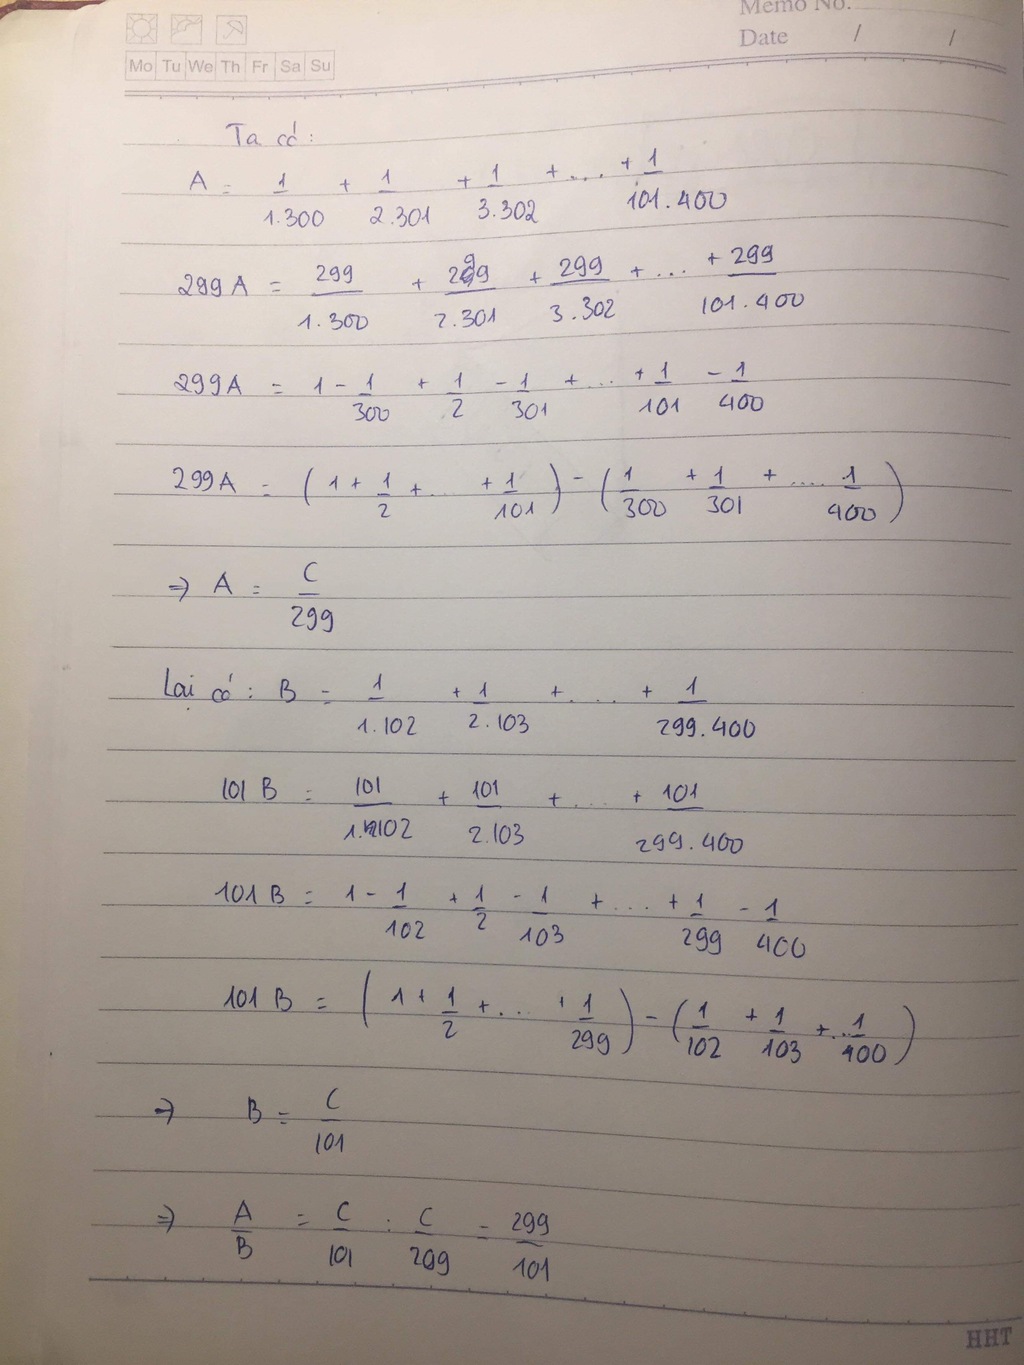 Memo No.
Date / /
Mo Tu We Th Fr Sa Su
Ta có:
A = 1/1.300 + 1/2.301 + 1/3.302 + ... + 1/101.400
299A = 299/1.300 + 299/2.301 + 299/3.302 + ... + 299/101.400
299A = 1 - 1/300 + 1/2 - 1/301 + ... + 1/101 - 1/400
299A = (1 + 1/2 + ... + 1/101) - (1/300 + 1/301 + .... 1/400)
=> A = C/299
Lại có: B = 1/1.102 + 1/2.103 + .... + 1/299.400
101B = 101/1.102 + 101/2.103 + .... + 101/299.400
101B = 1 - 1/102 + 1/2 - 1/103 + ... + 1/299 - 1/400
101B = (1 + 1/2 + ... + 1/299) - (1/102 + 1/103 + ... 1/400)
=> B = C/101
=> A/B = C/101 : C/299 = 299/101
HHT